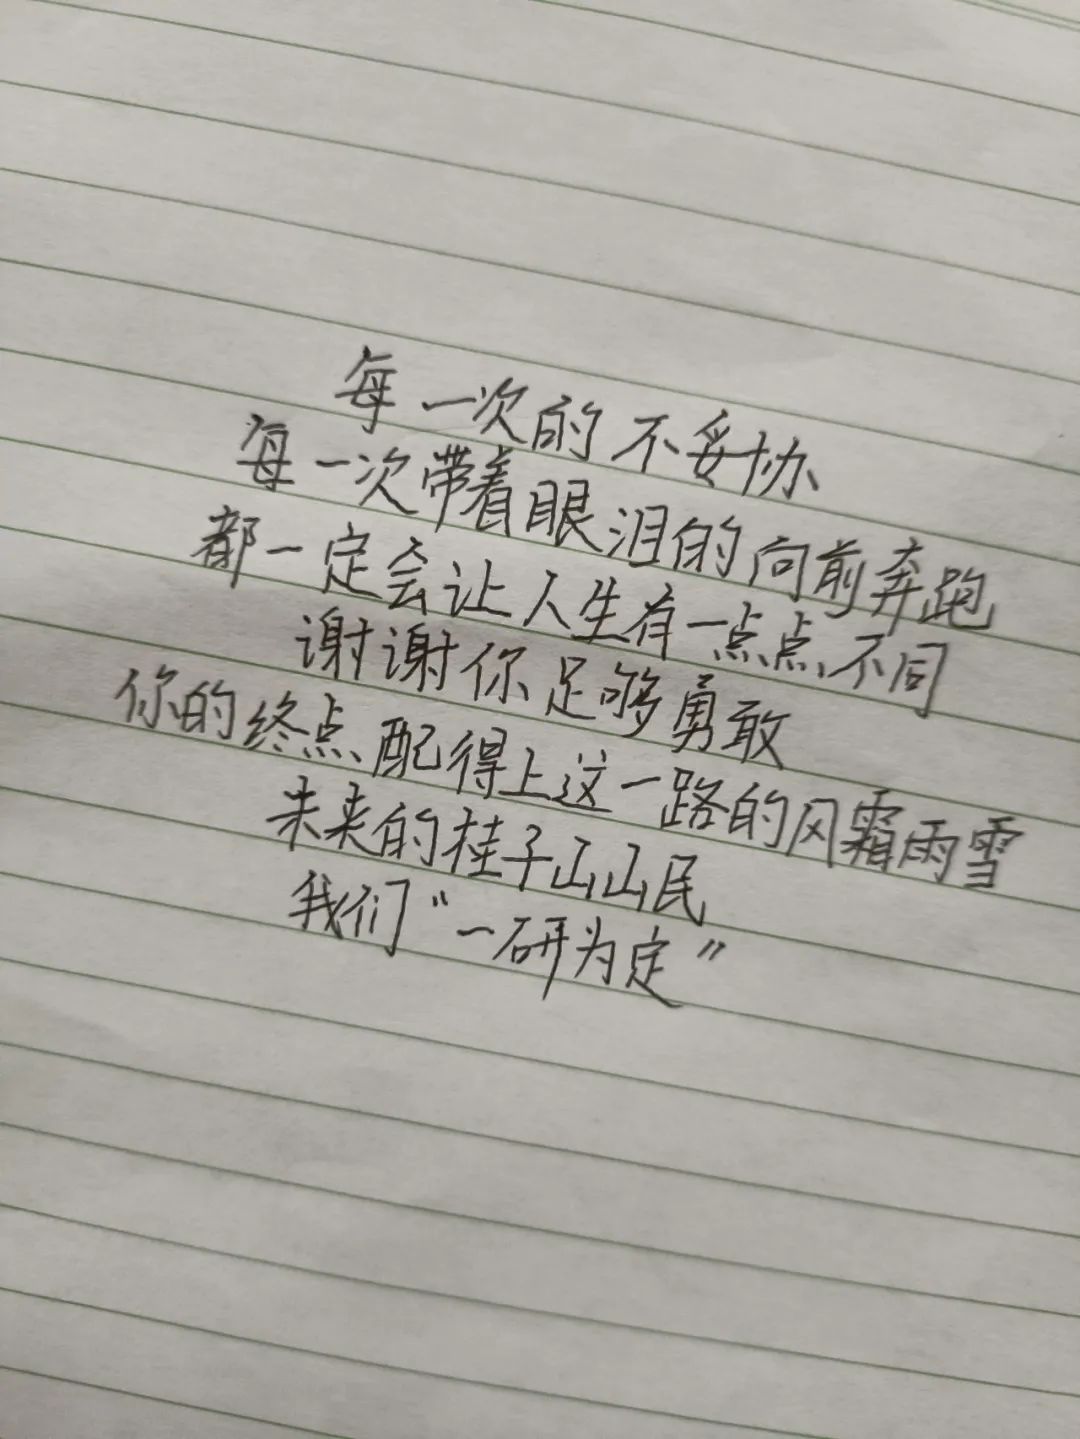 每一次的不妥协
每一次带着眼泪的向前奔跑
都一定会让人生有一点点不同
谢谢你足够勇敢
你的终点配得上这一路的风霜雨雪
未来的桂子山山民
我们“一研为定”